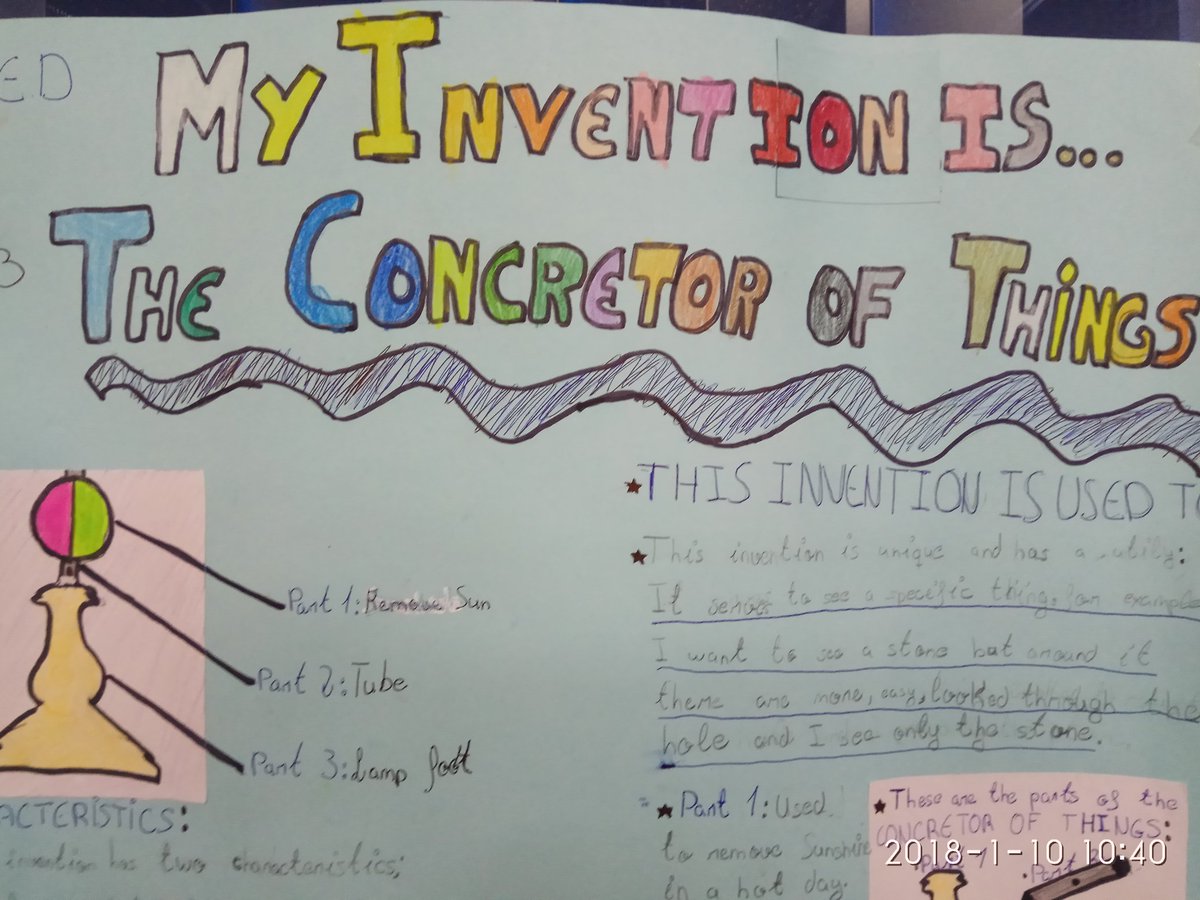 ED
MY INVENTION IS...
3
THE CONCRETOR OF THINGS
★THIS INVENTION IS USED TO
★This invention is unique and has a utility:
It serves to see a specific thing, for example
I want to see a stone but around it
there are more, easy, looked through the
hole and I see only the stone.
Part 1: Remove Sun
Part 2: Tube
Part 3: Lamp foot
ACTERISTICS:
invention has two characteristics;
★Part 1: Used
to remove Sunshine
in a hot day.
★These are the parts of the
CONCRETOR OF THINGS:
·Part 1
·Part
2018-1-10 10:40